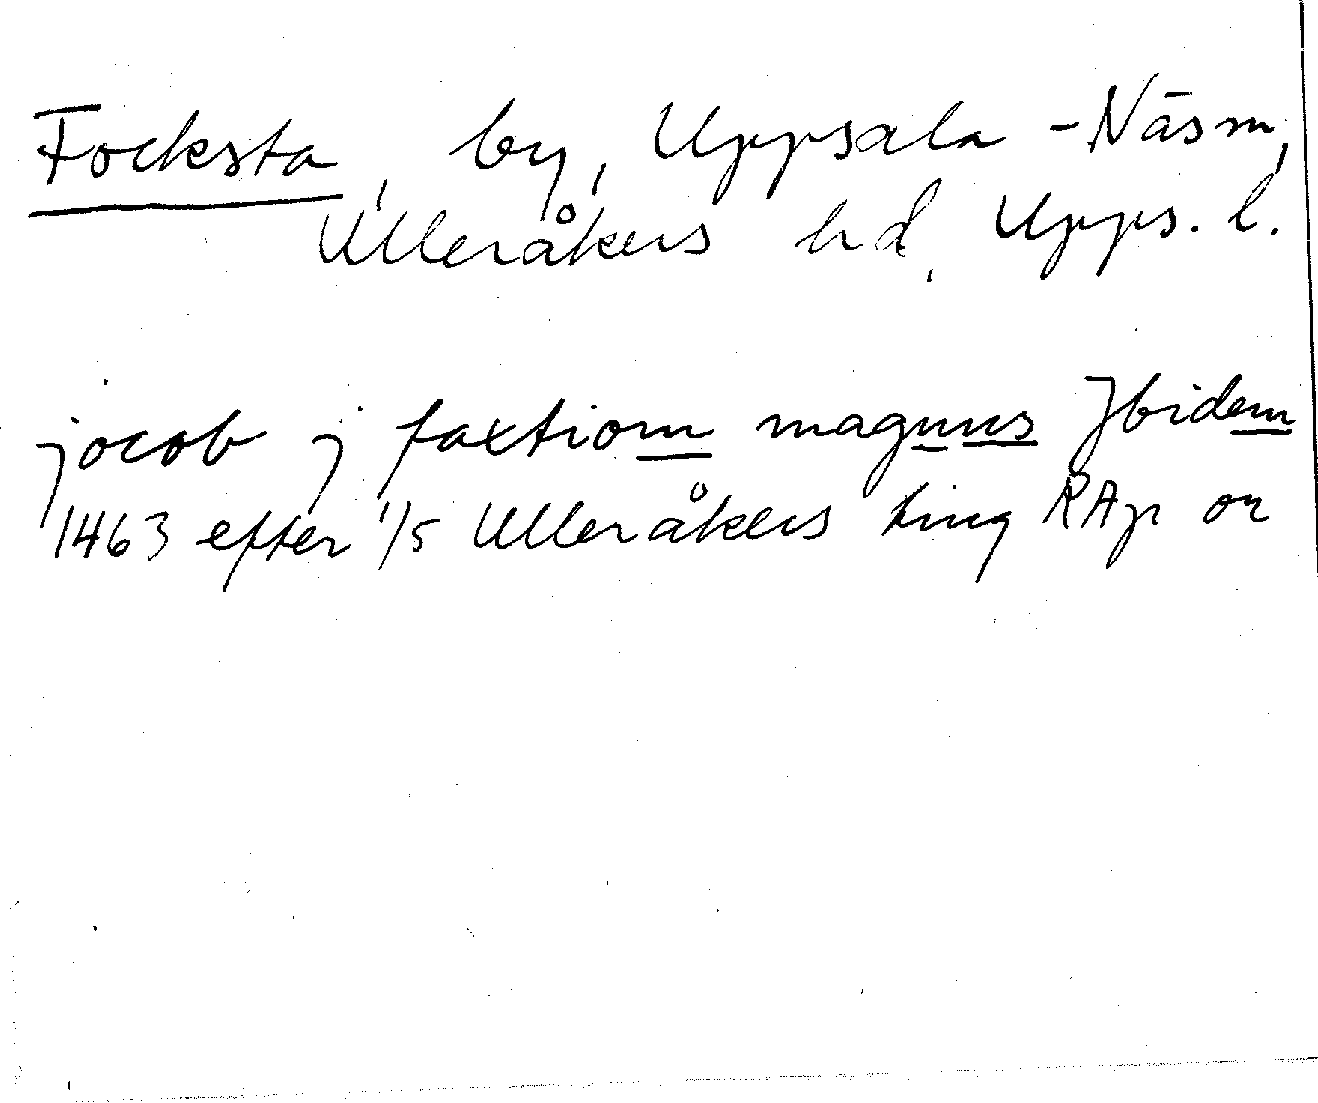 Focksta, by, Uppsala-Näs sn,
Ulleråkers hd, Upps. l.
jocob j faxtiom magnus Jbidem
1463 efter 1/5 Ulleråkers ting RAp or